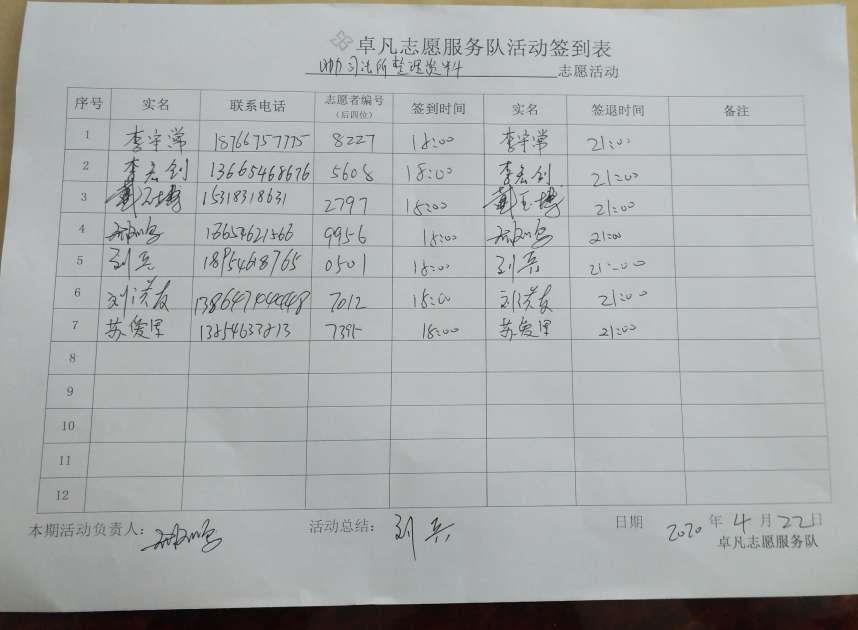 卓凡志愿服务队活动签到表
助司法所整理资料 志愿活动
序号 实名 联系电话 志愿者编号（后四位） 签到时间 实名 签退时间 备注
1 李宇常 18766757775 8227 18:00 李宇常 21:00
2 李宏剑 13665468676 5608 18:00 李宏剑 21:00
3 戴玉博 15318318631 2797 18:00 戴玉博 21:00
4 13654621566 9956 18:00 21:00
5 刘兵 18954618765 0501 18:00 刘兵 21:00
6 刘洪友 13864704448 7012 18:00 刘洪友 21:00
7 苏爱军 13254633213 7395 18:00 苏爱军 21:00
8
9
10
11
12
本期活动负责人： 活动总结：刘兵 日期 2020年4月22日
卓凡志愿服务队